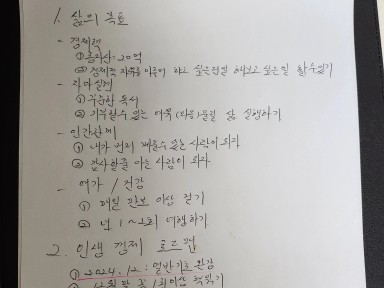 1. 삶의 목표
- 경제력
① 총자산: 20억
② 경제적 자유를 이루어 하고 싶은 것을 해보고 싶은 일 할 수 있기
- 자아실현
① 꾸준한 독서
② 기부할 수 있는 여유 삶 실행하기
- 인간관계
① 내가 먼저 베풀 수 있는 사람이 되자
② 감사할 줄 아는 사람이 되자
- 여가 / 건강
① 매일 만보 이상 걷기
② 년 1~2회 여행하기
2. 인생 경제 로드맵
① 2024. 12: 열반기초 완강